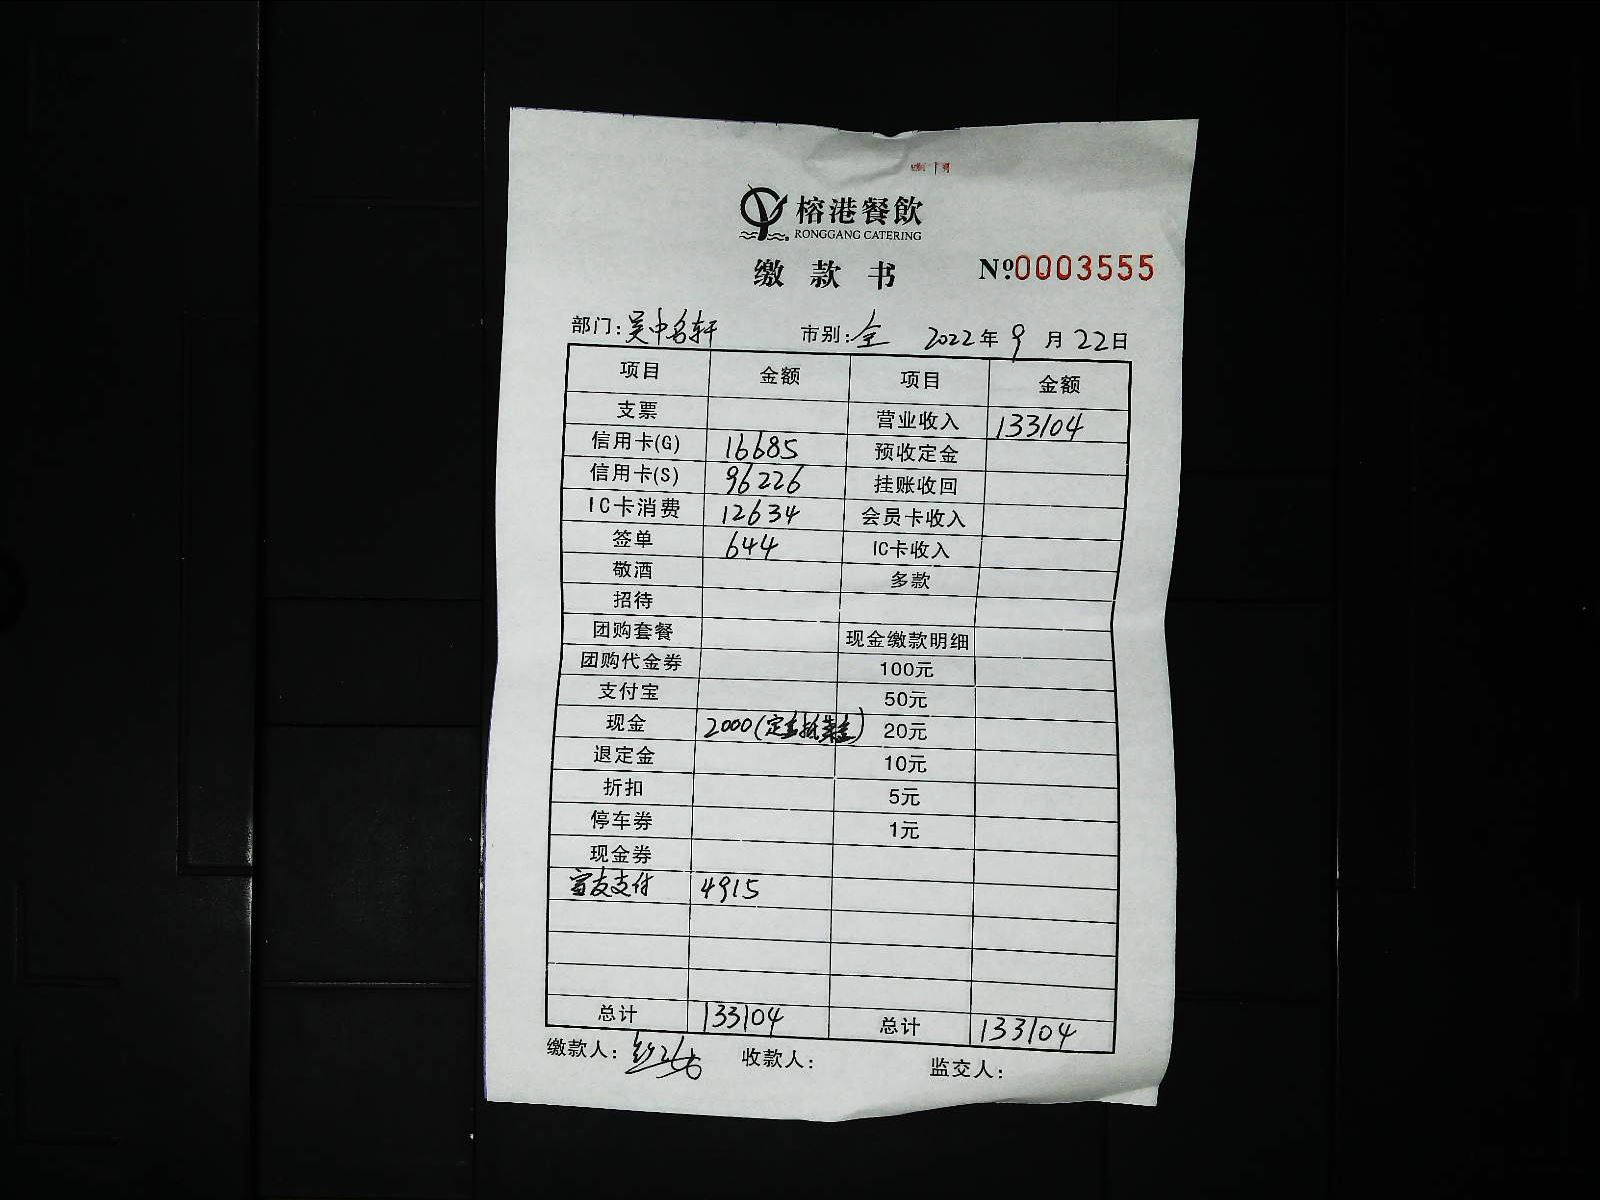 榕港餐飲
RONGGANG CATERING
缴款书 №0003555
部门:吴中名轩 市别:全 2022年9月22日
项目 金额 项目 金额
支票 营业收入 133104
信用卡(G) 16685 预收定金
信用卡(S) 96226 挂账收回
IC卡消费 12634 会员卡收入
签单 644 IC卡收入
敬酒 多款
招待
团购套餐 现金缴款明细
团购代金券 100元
支付宝 50元
现金 2000(定金抵) 20元
退定金 10元
折扣 5元
停车券 1元
现金券
富友支付 4915
总计 133104 总计 133104
缴款人: 收款人: 监交人: